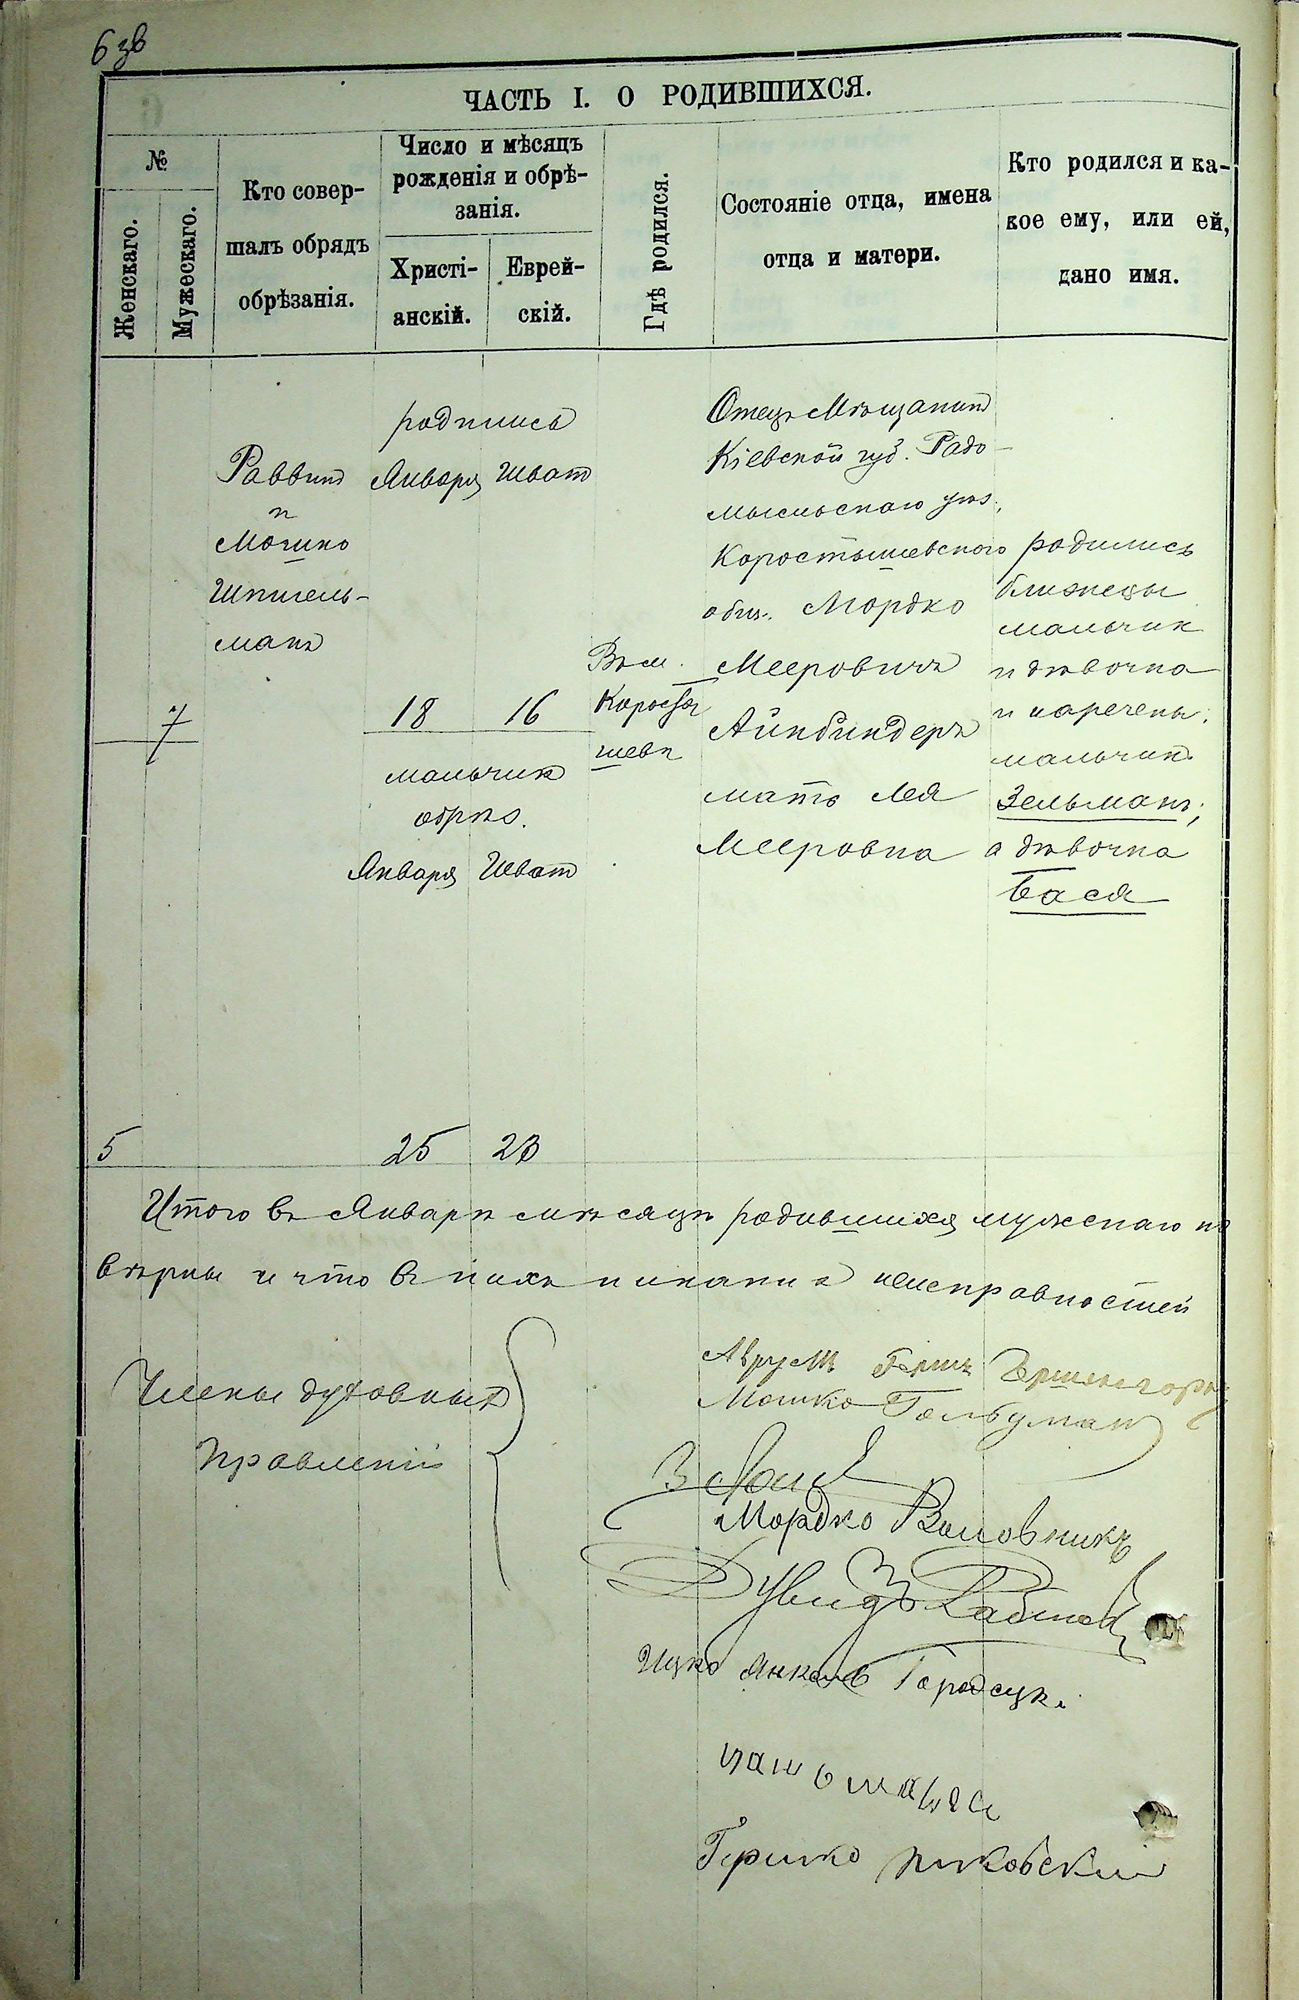 6 зв
ЧАСТЬ I. О РОДИВШИХСЯ.
№
Женскаго.
Мужескаго.
Кто совер-
шалъ обрядъ
обрѣзанія.
Число и мѣсяцъ
рожденія и обрѣ-
занія.
Христі-
анскій.
Еврей-
скій.
Гдѣ родился.
Состояніе отца, имена
отца и матери.
Кто родился и ка-
кое ему, или ей,
дано имя.
7
Раввинъ
и
Могило
Шпигель-
манъ
родились
Января Шватъ
18 16
мальчик
обрѣз.
Января Шватъ
Въ м.
Коросты
шевѣ
Отецъ Мѣщанинъ
Кіевской губ. Радо-
мысльскаго уѣз.
Коростышевского
общ. Мордко
Мееровичъ
Айнбиндеръ
мать Лея
Мееровна
родились
близнецы
мальчик
и дѣвочка
и наречены:
мальчикъ
Зельманъ;
а дѣвочка
Бася
5 25 23
Итого въ Январѣ мѣсяцѣ родившихся мужескаго по
вѣрны и что въ нихъ никакихъ неисправностей
Члены духовныхъ
правленій
Аврумъ Гершъ
Мошко
Мордко Воловникъ
Дувидъ
Ицко Янкель Городецкі
Гершко